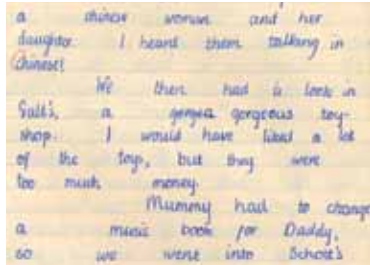 a chinese woman and her
daughter. I heard them talking in
Chinese!
We then had a look in
Galt's, a gorgeous toy-
shop. I would have liked a lot
of the toys, but they were
too much money.
Mummy had to change
a music book for Daddy,
so we went into Schott's